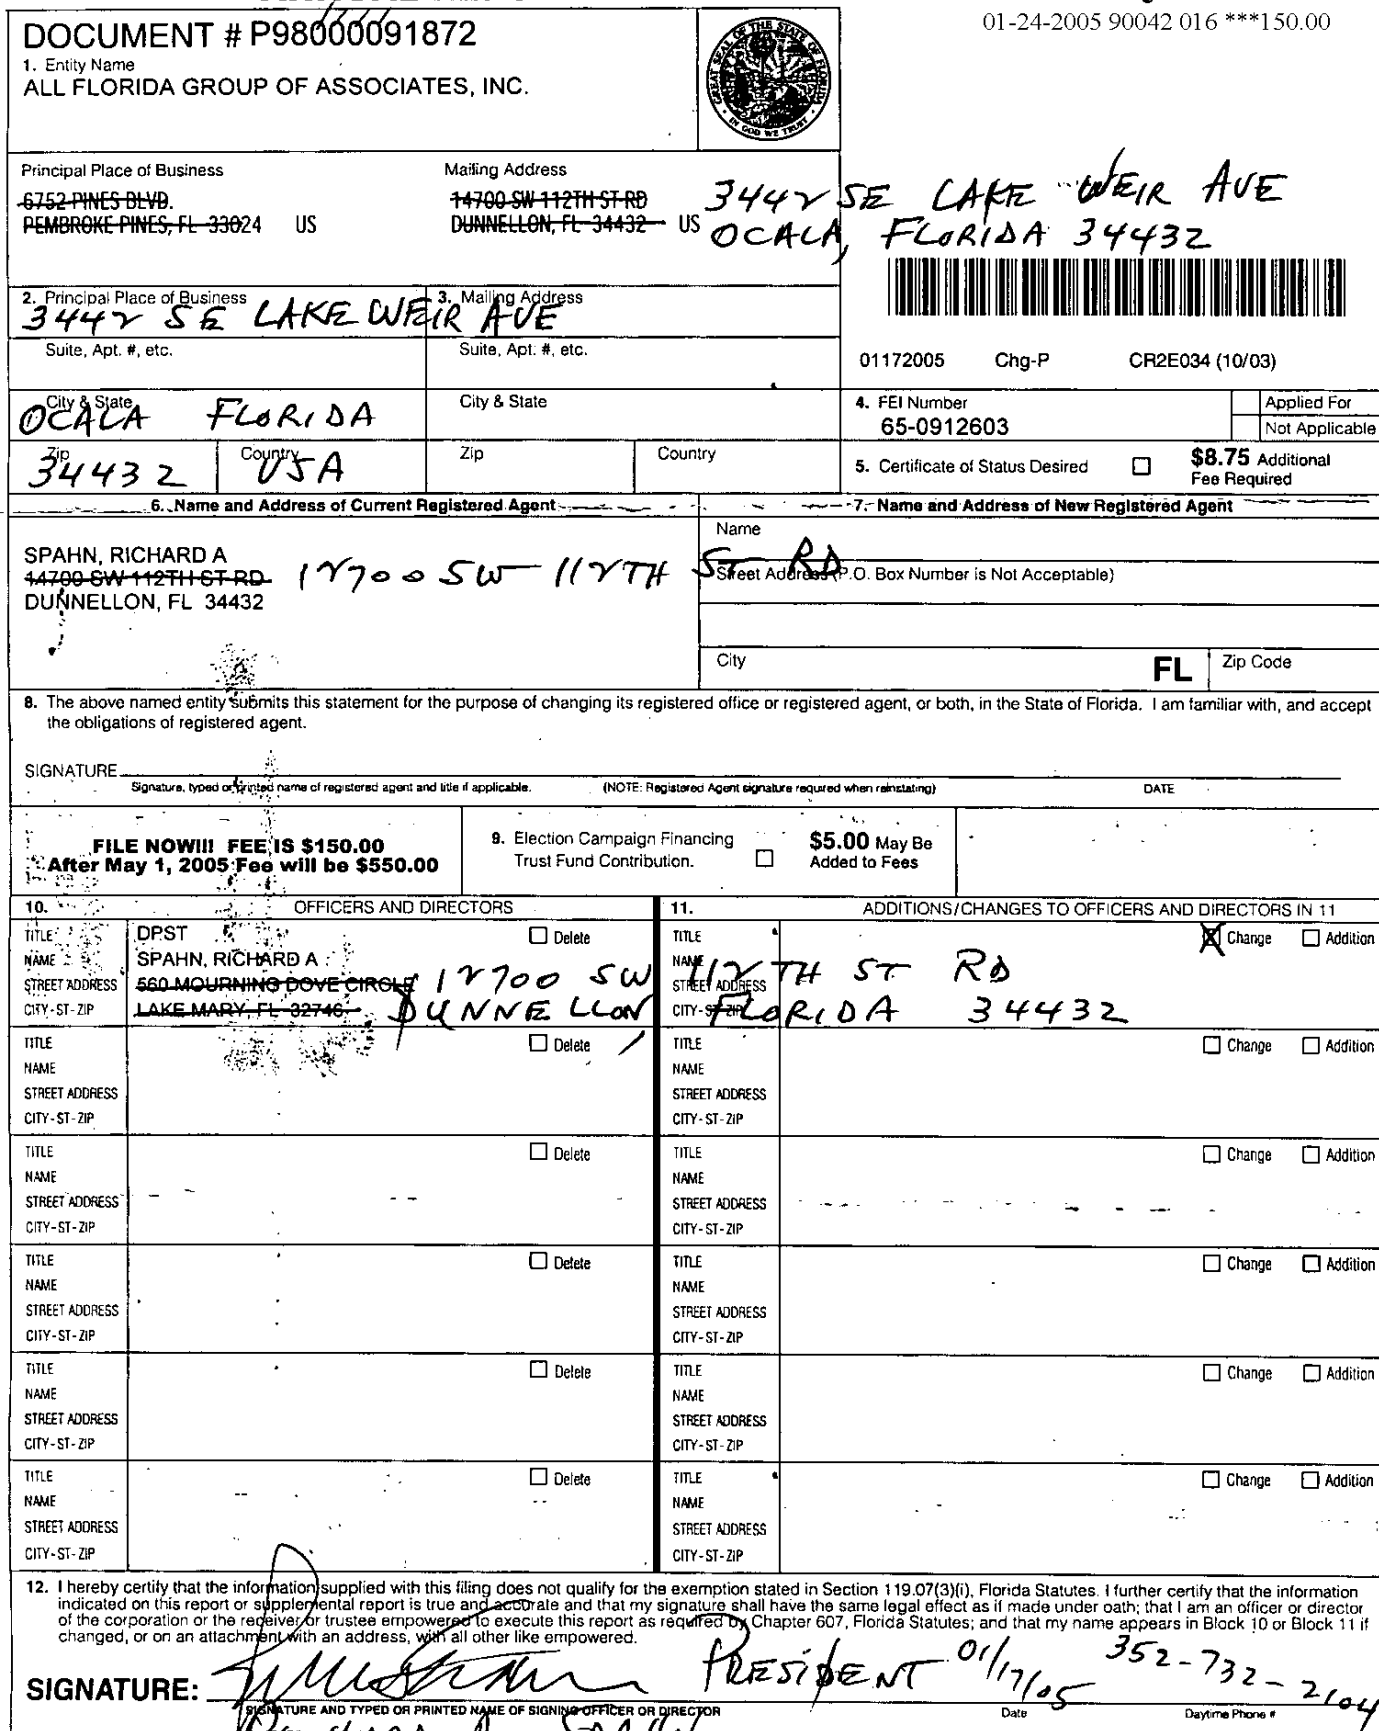 01-24-2005 90042 016 ***150.00
DOCUMENT # P98000091872
1. Entity Name
ALL FLORIDA GROUP OF ASSOCIATES, INC.
GREAT SEAL OF THE STATE OF FLORIDA
IN GOD WE TRUST
Principal Place of Business
6752 PINES BLVD.
PEMBROKE PINES, FL 33024 US
Mailing Address
14700 SW 112TH ST RD
DUNNELLON, FL 34432 US
3442 SE LAKE WEIR AVE
OCALA, FLORIDA 34432
2. Principal Place of Business
3. Mailing Address
3442 SE LAKE WEIR AVE
Suite, Apt. #, etc.
Suite, Apt. #, etc.
01172005 Chg-P CR2E034 (10/03)
City & State
OCALA FLORIDA
City & State
4. FEI Number
65-0912603
Applied For
Not Applicable
Zip
34432
Country
USA
Zip
Country
5. Certificate of Status Desired
$8.75 Additional
Fee Required
6. Name and Address of Current Registered Agent
7. Name and Address of New Registered Agent
SPAHN, RICHARD A
14700 SW 112TH ST RD
DUNNELLON, FL 34432
12700 SW 112TH ST RD
Name
Street Address (P.O. Box Number is Not Acceptable)
City
FL
Zip Code
8. The above named entity submits this statement for the purpose of changing its registered office or registered agent, or both, in the State of Florida. I am familiar with, and accept
the obligations of registered agent.
SIGNATURE
Signature, typed or printed name of registered agent and title if applicable. (NOTE: Registered Agent signature required when reinstating) DATE
FILE NOW!!! FEE IS $150.00
After May 1, 2005 Fee will be $550.00
9. Election Campaign Financing
Trust Fund Contribution.
$5.00 May Be
Added to Fees
10. OFFICERS AND DIRECTORS
11. ADDITIONS/CHANGES TO OFFICERS AND DIRECTORS IN 11
TITLE DPST Delete
NAME SPAHN, RICHARD A
STREET ADDRESS 560 MOURNING DOVE CIRCLE
CITY-ST-ZIP LAKE MARY, FL 32746
TITLE X Change Addition
NAME
STREET ADDRESS
CITY-ST-ZIP
12700 SW 112TH ST RD
DUNNELLON, FLORIDA 34432
TITLE Delete
NAME
STREET ADDRESS
CITY-ST-ZIP
TITLE Change Addition
NAME
STREET ADDRESS
CITY-ST-ZIP
TITLE Delete
NAME
STREET ADDRESS
CITY-ST-ZIP
TITLE Change Addition
NAME
STREET ADDRESS
CITY-ST-ZIP
TITLE Delete
NAME
STREET ADDRESS
CITY-ST-ZIP
TITLE Change Addition
NAME
STREET ADDRESS
CITY-ST-ZIP
TITLE Delete
NAME
STREET ADDRESS
CITY-ST-ZIP
TITLE Change Addition
NAME
STREET ADDRESS
CITY-ST-ZIP
TITLE Delete
NAME
STREET ADDRESS
CITY-ST-ZIP
TITLE Change Addition
NAME
STREET ADDRESS
CITY-ST-ZIP
12. I hereby certify that the information supplied with this filing does not qualify for the exemption stated in Section 119.07(3)(i), Florida Statutes. I further certify that the information
indicated on this report or supplemental report is true and accurate and that my signature shall have the same legal effect as if made under oath; that I am an officer or director
of the corporation or the receiver or trustee empowered to execute this report as required by Chapter 607, Florida Statutes; and that my name appears in Block 10 or Block 11 if
changed, or on an attachment with an address, with all other like empowered.
SIGNATURE: PRESIDENT 01/17/05 352-732-2104
SIGNATURE AND TYPED OR PRINTED NAME OF SIGNING OFFICER OR DIRECTOR Date Daytime Phone #